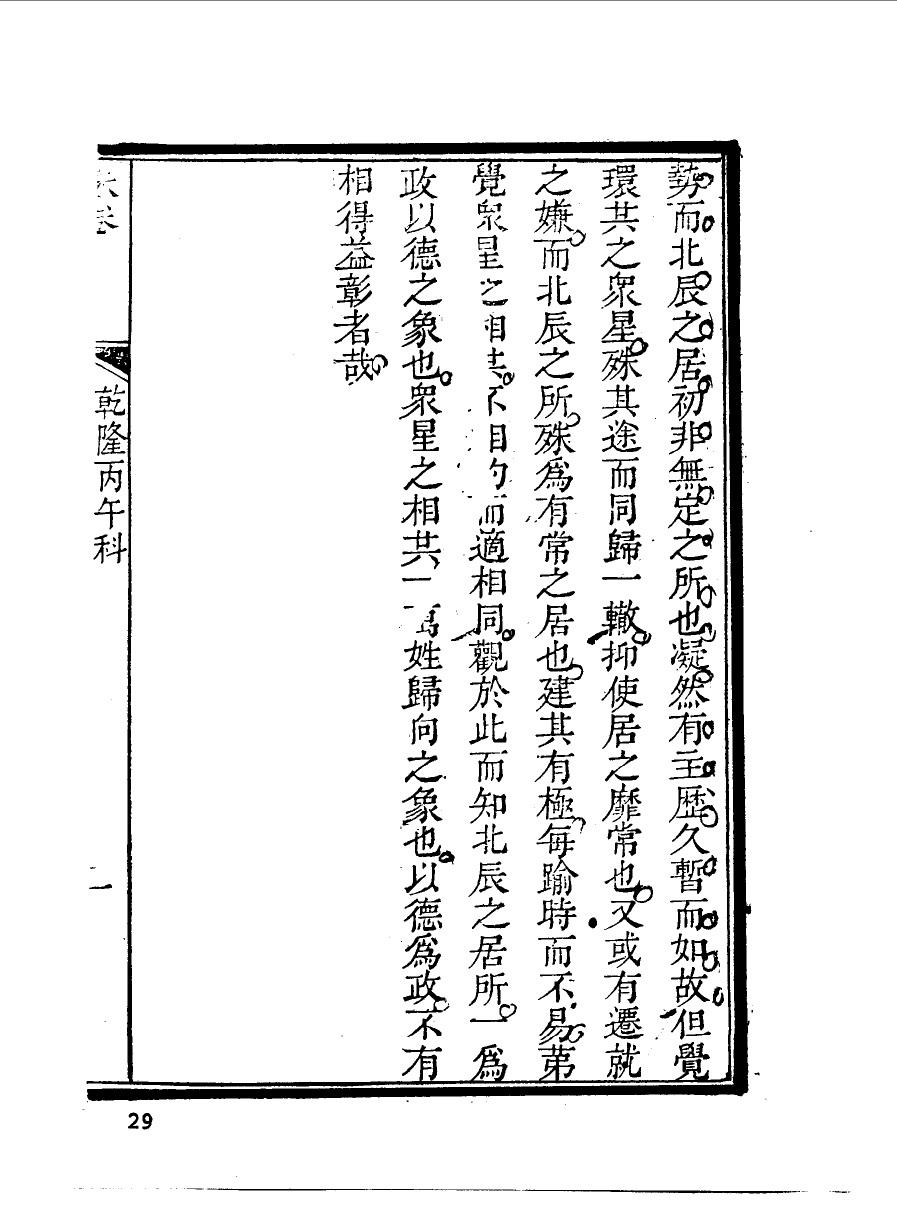 勢而北辰之居初非無定之所也凝然有主歷久暫而如故但覺
環共之衆星殊其途而同歸一轍抑使居之靡常也又或有遷就
之嫌而北辰之所殊爲有常之居也建其有極每踰時而不易第
覺衆星之相共不目而適相同觀於此而知北辰之居所一爲
政以德之象也衆星之相共一萬姓歸向之象也以德爲政不有
相得益彰者哉
朱卷
乾隆丙午科
二
29